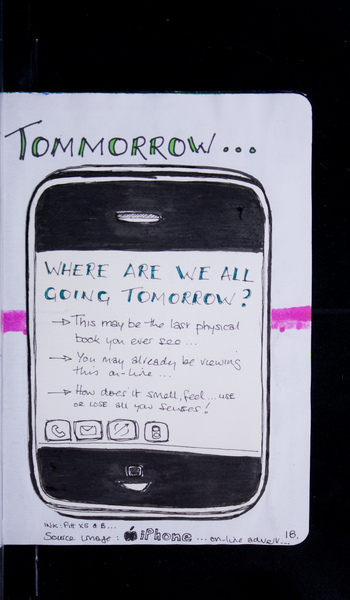 TOMMORROW...
WHERE ARE WE ALL
GOING TOMORROW?
→ This may be the last physical
book you ever see...
→ You may already be viewing
this on-line...
→ How does it smell, feel... use
or lose all your senses!
INK: Pitt XS & B...
Source image: iPhone ...on-line advert...
18.